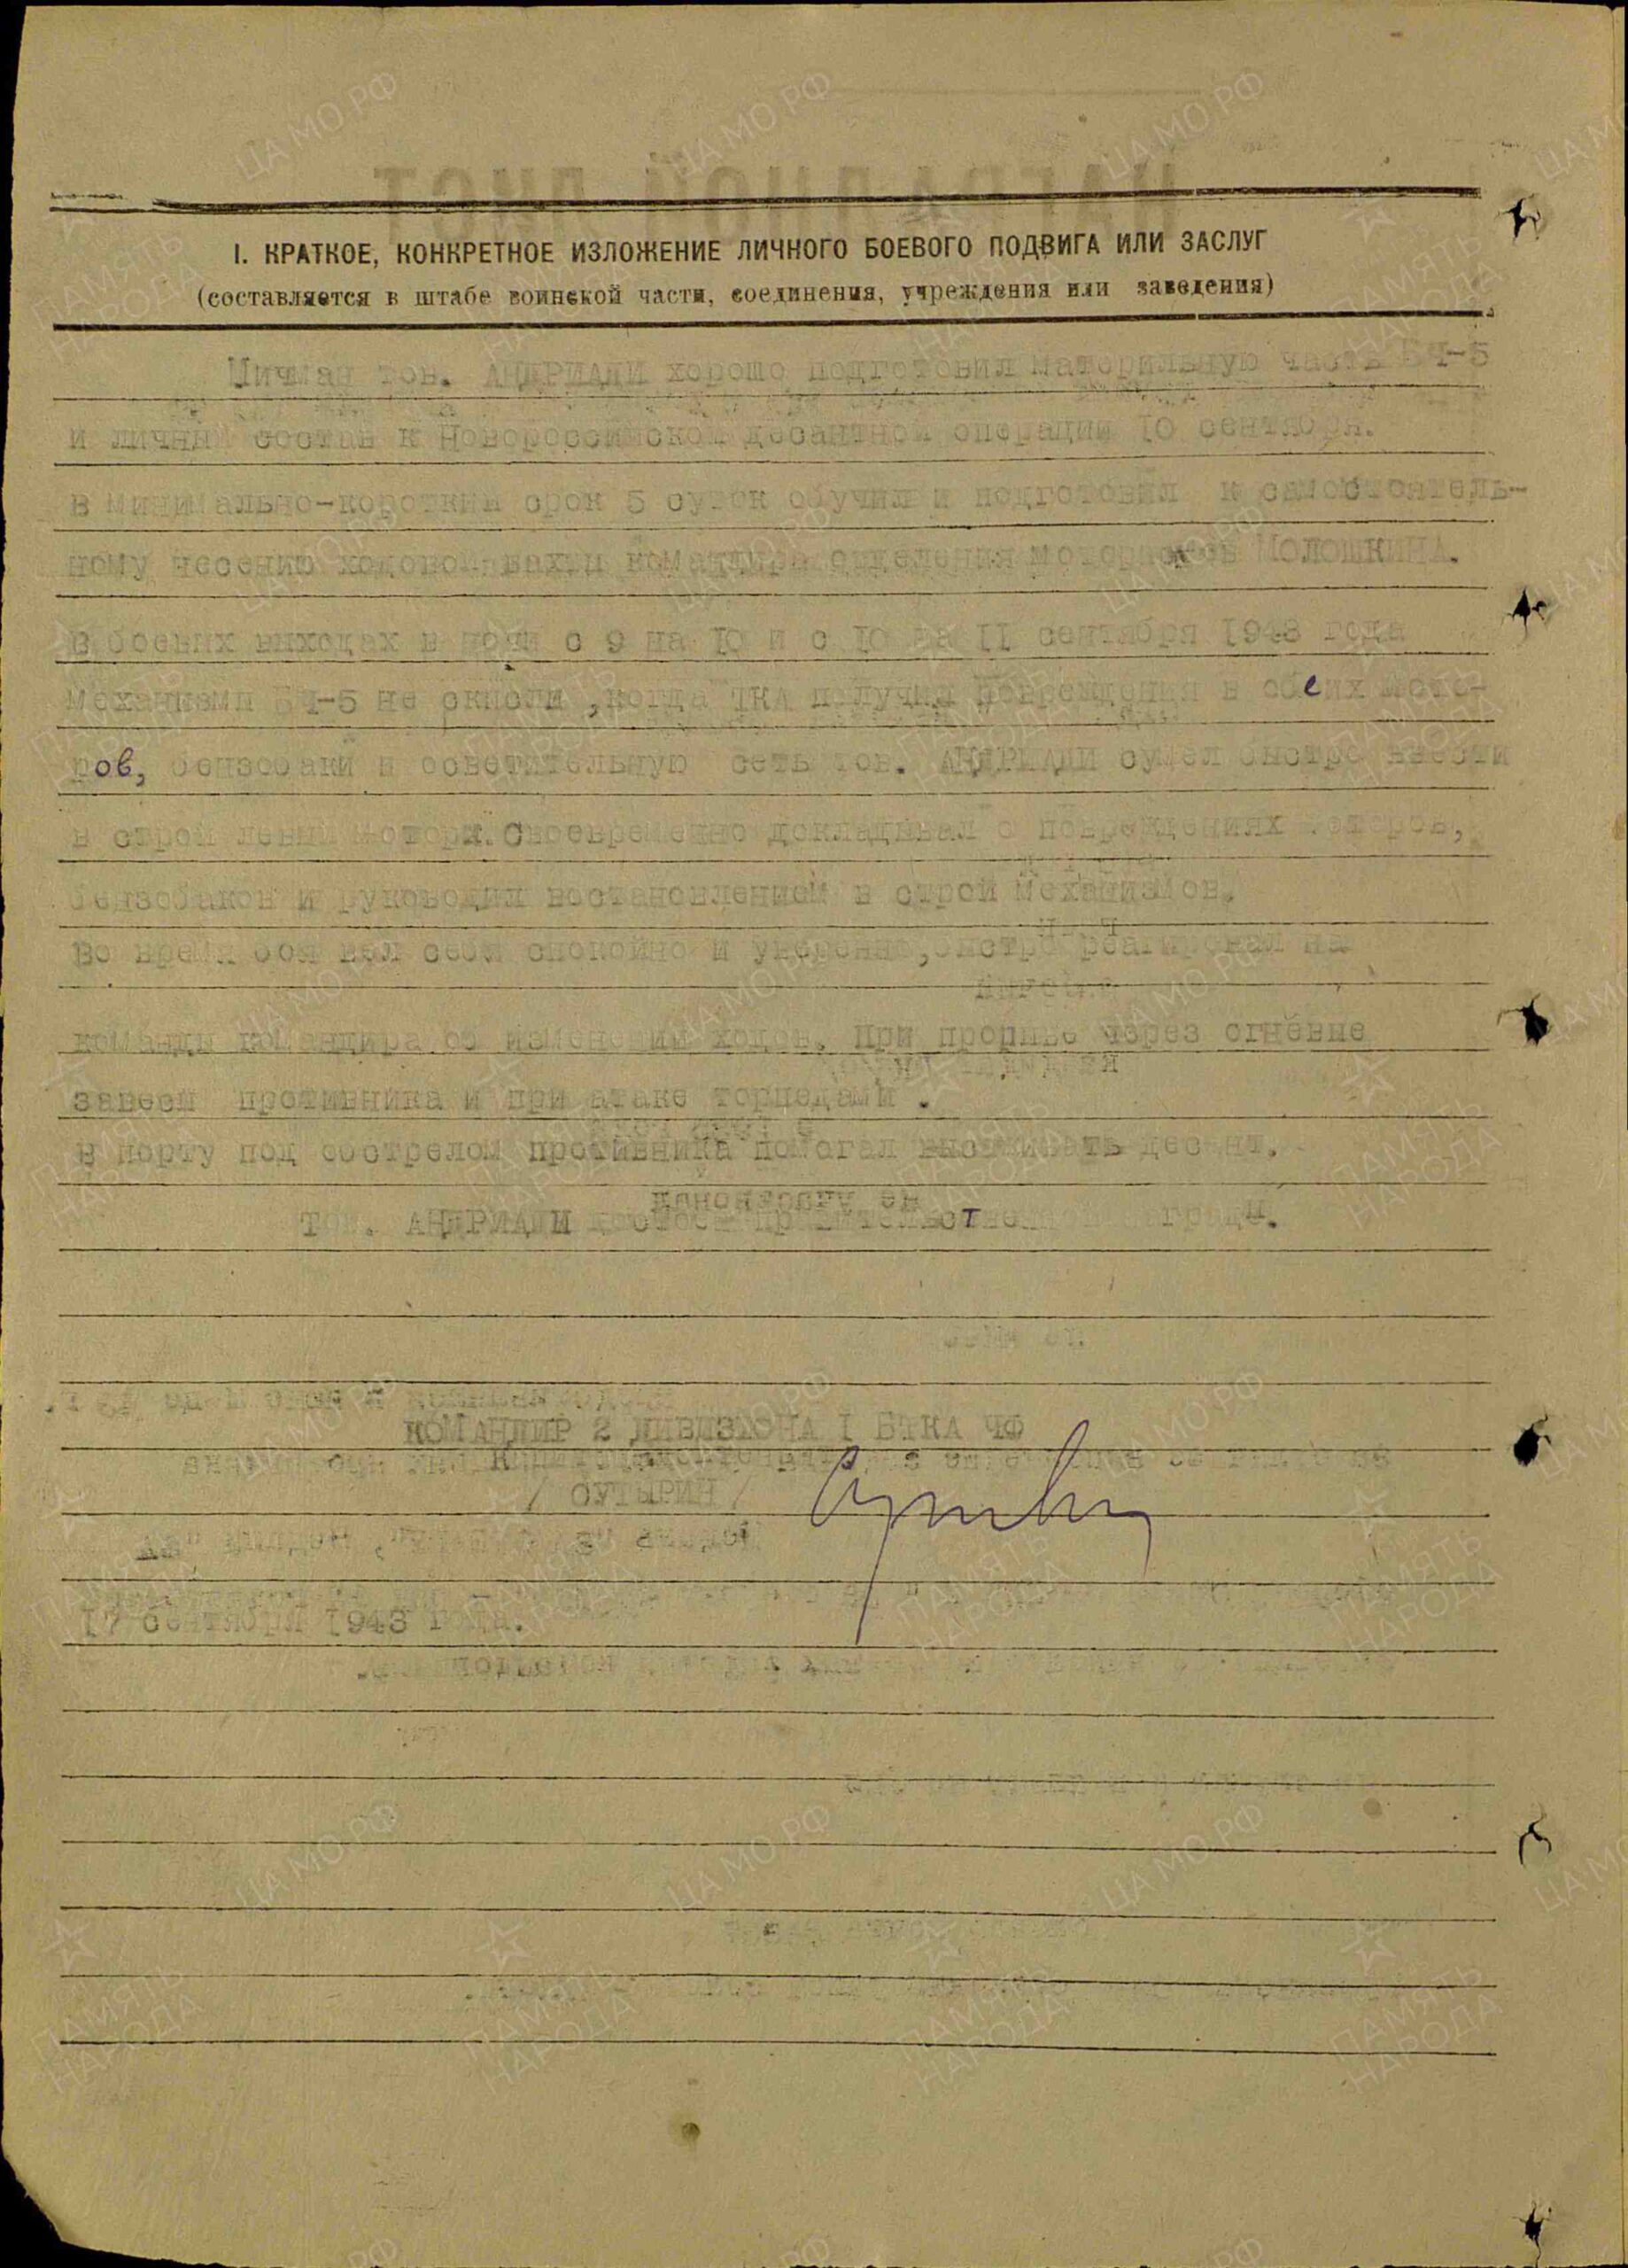 I. КРАТКОЕ, КОНКРЕТНОЕ ИЗЛОЖЕНИЕ ЛИЧНОГО БОЕВОГО ПОДВИГА ИЛИ ЗАСЛУГ
(составляется в штабе воинской части, соединения, учреждения или заведения)
Мичман тов. АНДРИАДИ хорошо подготовил материльную часть БЧ-5
и личный состав к Новороссийской десантной операции 10 сентября.
в минимально-короткий срок 5 суток обучил и подготовил к самостоятель-
ному несению ходовой вахты командира отделения мотористов МОЛОШКИНА.
В боевых выходах в ночи с 9 на 10 и с 10 на 11 сентября 1943 года
механизмы БЧ-5 не скисли, когда ТКА получил повреждения в обеих мото-
ров, бензобаки и осветительную сеть тов. АНДРИАДИ сумел быстро ввести
в строй левый мотор. Своевременно докладывал о повреждениях моторов,
бензобаков и руководил востановлением в строй механизмов.
Во время боя вел себя спокойно и уверенно, быстро реагировал на
команды командира об изменении ходов. При прорыве через огневые
завесы противника и при атаке торпедами.
В порту под обстрелом противника помогал высаживать десант.
Тов. АНДРИАДИ достоен правительственной награды.
КОМАНДИР 2 ДИВИЗИОНА I БТКА ЧФ
/ СУТЫРИН /
17 сентября 1943 года.
ЦА МО РФ
ПАМЯТЬ НАРОДА